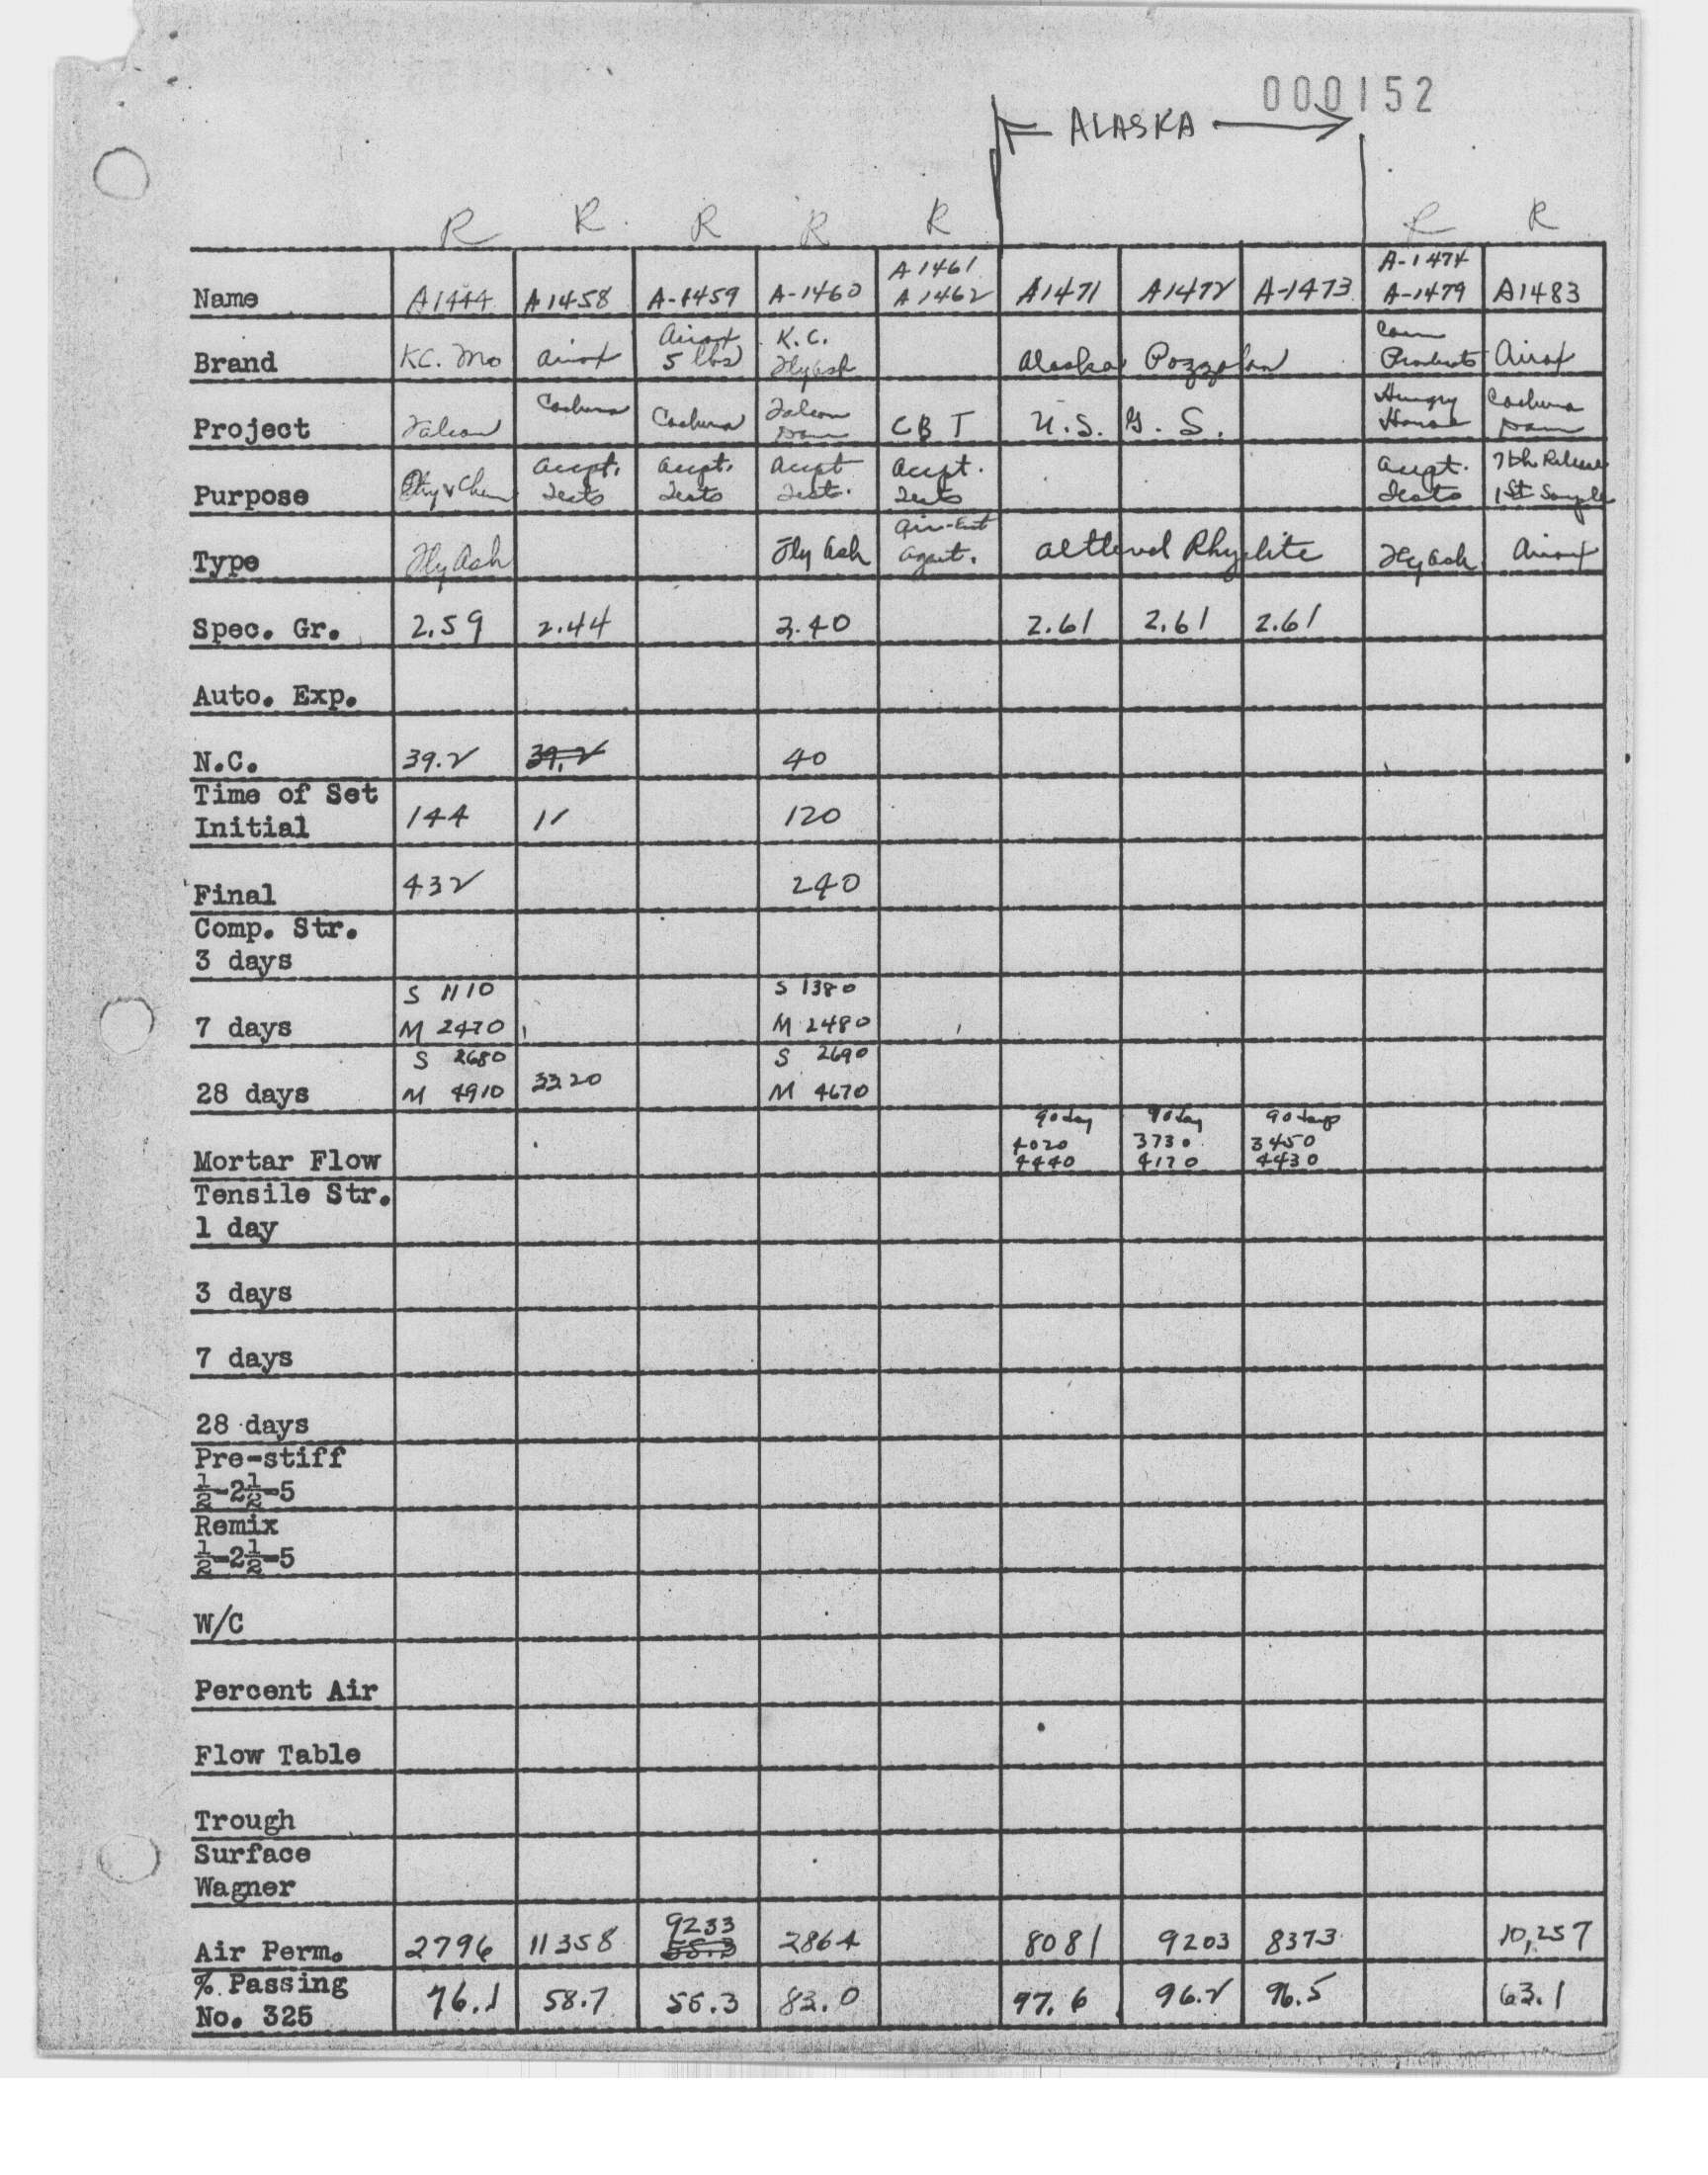 000152
ALASKA
R R R R R R R
A1461 A-1474
Name A1444 A1458 A-1459 A-1460 A1462 A1471 A1472 A-1473 A-1479 A1483
Airox K.C.
Brand KC. Mo Airox 5 lbs Flyash Alaska Pozzolan Products Airox
Cachuma Falcon Hungry Cachuma
Project Falcon Cachuma Dam CBT U.S. G.S. Horse Dam
Accpt. Accpt. Accpt Accpt. Accpt. 7th Release
Purpose Phy & Chem Tests Tests Tests. Tests Tests 1st Sample
Air-Ent
Type Fly Ash Fly Ash Agent. Rhyolite Fly ash Airox
Spec. Gr. 2.59 2.44 2.40 2.61 2.61 2.61
Auto. Exp.
N.C. 39.2 39.2 40
Time of Set
Initial 144 11 120
Final 432 240
Comp. Str.
3 days
S 1110 S 1380
7 days M 2470 M 2480
S 2680 S 2690
28 days M 4910 3320 M 4670
90 day 90 day 90 days
4020 3730 3450
Mortar Flow 4440 4170 4430
Tensile Str.
1 day
3 days
7 days
28 days
Pre-stiff
½-2½-5
Remix
½-2½-5
W/C
Percent Air
Flow Table
Trough
Surface
Wagner
9233
Air Perm. 2796 11358 55.3 2864 8081 9203 8373 10,257
% Passing
No. 325 76.1 58.7 55.3 83.0 97.6 96.2 96.5 63.1